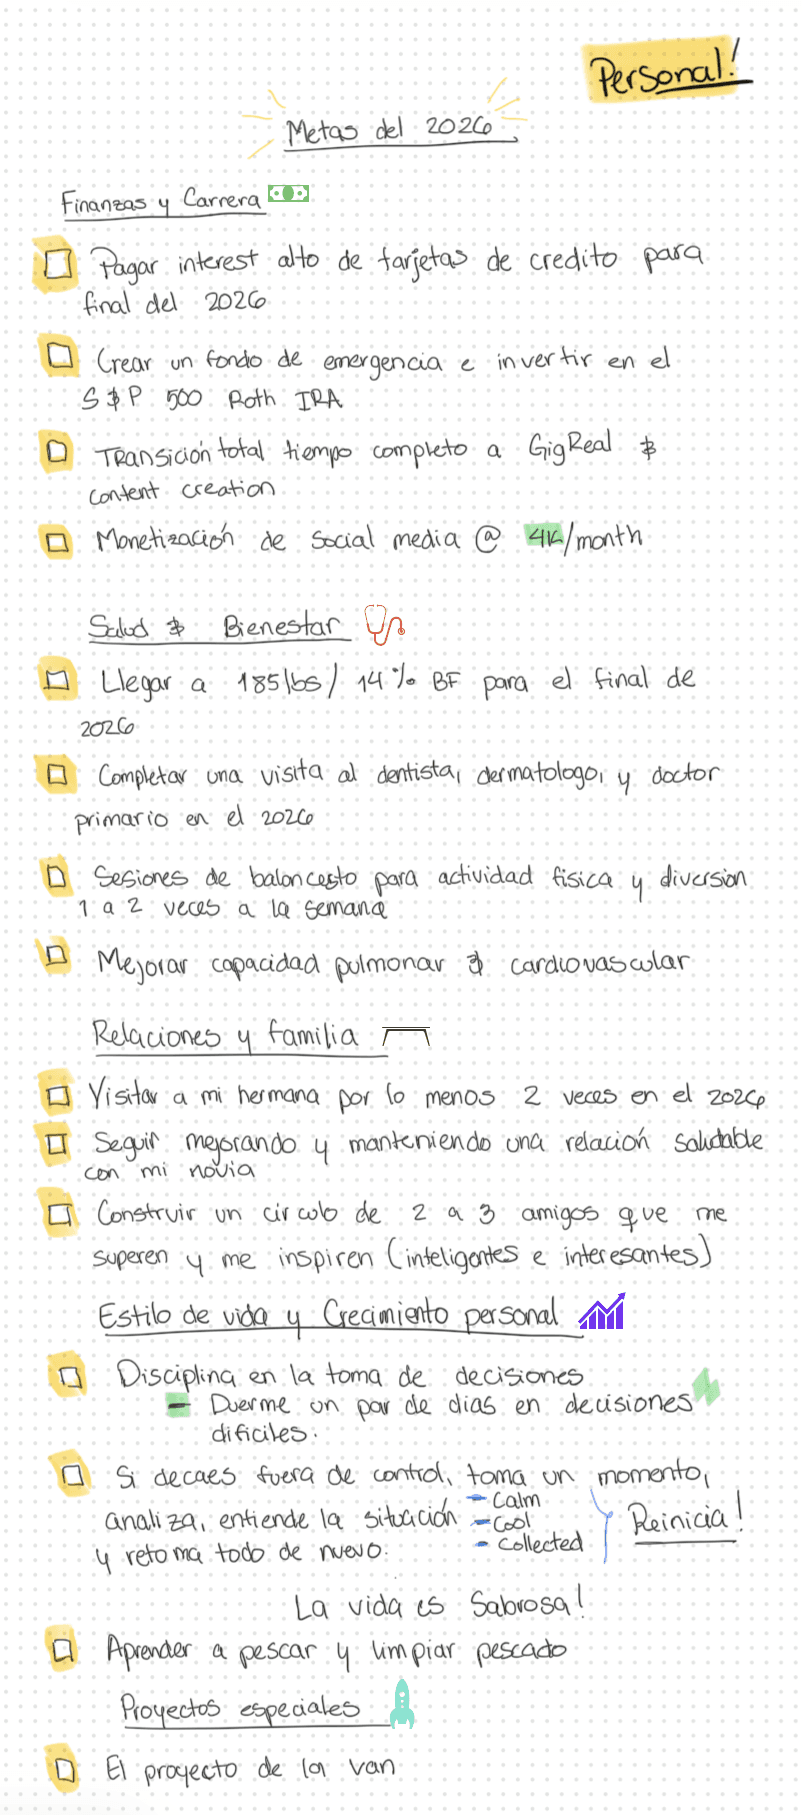 Personal!
Metas del 2026
Finanzas y Carrera
Pagar interest alto de tarjetas de credito para
final del 2026
Crear un fondo de emergencia e invertir en el
S&P 500 Roth IRA
Transición total tiempo completo a GigReal &
content creation
Monetización de social media @ 4K/month
Salud & Bienestar
Llegar a 185lbs / 14% BF para el final de
2026
Completar una visita al dentista, dermatologo, y doctor
primario en el 2026
Sesiones de baloncesto para actividad fisica y diversion
1 a 2 veces a la semana
Mejorar capacidad pulmonar & cardiovascular
Relaciones y familia
Visitar a mi hermana por lo menos 2 veces en el 2026
Seguir mejorando y manteniendo una relación saludable
con mi novia
Construir un circulo de 2 a 3 amigos que me
superen y me inspiren (inteligentes e interesantes)
Estilo de vida y Crecimiento personal
Disciplina en la toma de decisiones
- Duerme un par de dias en decisiones
dificiles.
Si decaes fuera de control, toma un momento,
analiza, entiende la situación
y retoma todo de nuevo.
- Calm
- Cool
- Collected
Reinicia!
La vida es Sabrosa!
Aprender a pescar y limpiar pescado
Proyectos especiales
El proyecto de la van